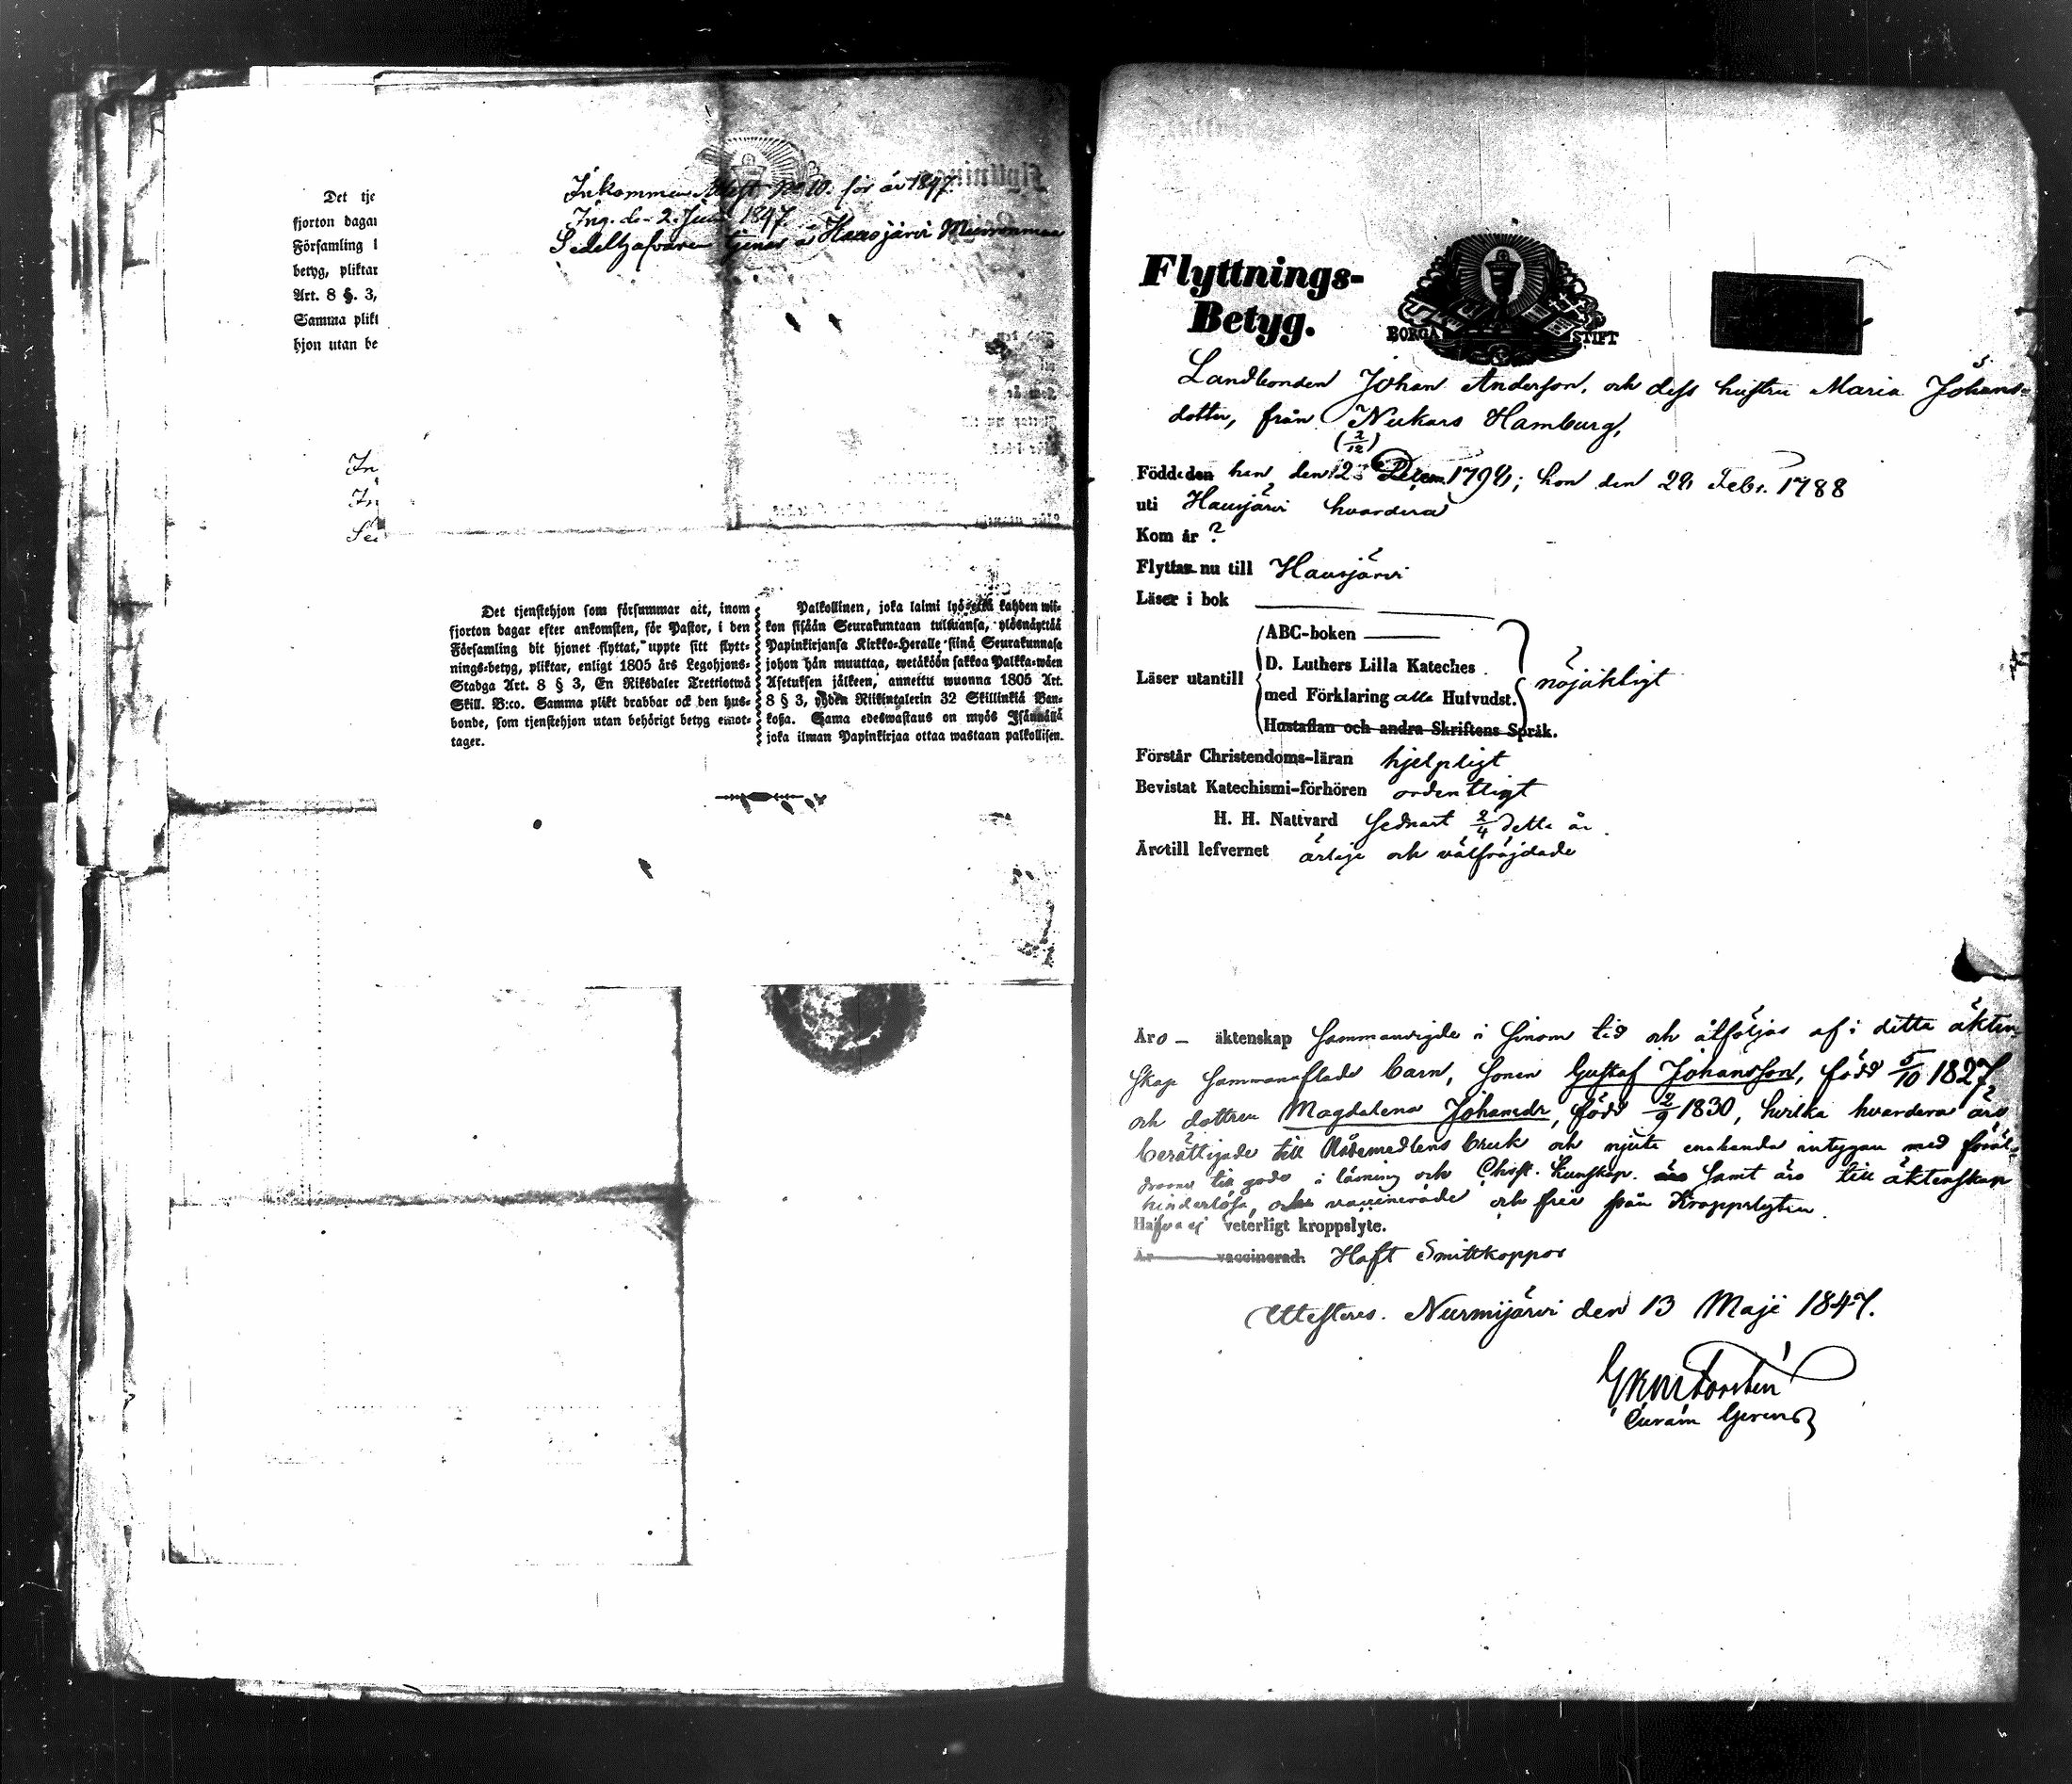 Det tje
fjorton dagar
Församling
betyg, pliktar
Art. 8 §. 3,
Samma plikt
hjon utan be
Inkommen Attest No 10. för år 1847.
Ing. d. 2. Juni 1847.
Sedelhafvaren Hausjärvi
In
In
Se
Det tjenstehjon som försummar att, inom
fjorton dagar efter ankomsten, för Pastor, i den
Församling dit hjonet flyttat, uppte sitt flytt-
nings-betyg, pliktar, enligt 1805 års Legohjons-
Stadga Art. 8 § 3, En Riksdaler Trettiotwå
Skill. B:co. Samma plikt drabbar ock den hus-
bonde, som tjenstehjon utan behörigt betyg emot-
tager.
Palkollinen, joka laimi lyö että kahden wii-
kon sisään Seurakuntaan tultuansa, ylösnäyttää
Papinkirjansa Kirkko-Herralle siinä Seurakunnasa
johon hän muuttaa, wetäköön sakkoa Palkka-wäen
Asetuksen jälkeen, annettu wuonna 1805 Art.
8 § 3, yhden Riikintalerin 32 Skillinkiä Ban-
koßa. Sama edeswastaus on myös Isännällä
joka ilman Papinkirjaa ottaa wastaan palkollisen.
Flyttnings-
Betyg.
BORGÅ STIFT
Landbonden Johan Anderson, och dess hustru Maria Johans-
dotter, från Nukars Hamburg,
(2/12)
Födde den han den 2 Decem. 179; hon den 28 Febr. 1788
uti Hausjärvi hvardera
Kom år ?
Flyttas nu till Hausjärvi
Läser i bok
ABC-boken
D. Luthers Lilla Kateches
Läser utantill
med Förklaring alla Hufvudst.
nöjaktigt
Hustaflan och andra Skriftens Språk.
Förstår Christendoms-läran hjelpligt
Bevistat Katechismi-förhören ordentligt
H. H. Nattvard sednast 2/4 detta år
Äro till lefvernet ärliga och välfräjdade
Äro äktenskap sammanvigde i sinom tid och åtföljas af i detta äkten-
skap sammanaflade barn, sonen Gustaf Johansson, född 5/10 1827,
och dottren Magdalena Johansdr, född 2/9 1830, hvilka hvardera äro
berättigade till Nådemedlens bruk och njuta enahanda intygan med föräl-
drarne till godo i läsning och Christ. kunskap. samt äro till äktenskap
hinderlösa, vaccinerade och frie från Kroppslyten.
Hafva ej veterligt kroppslyte.
Är vaccinerad. Haft Smittkoppor
Attesteras. Nurmijärvi den 13 Maji 1847.
Curam Gerens